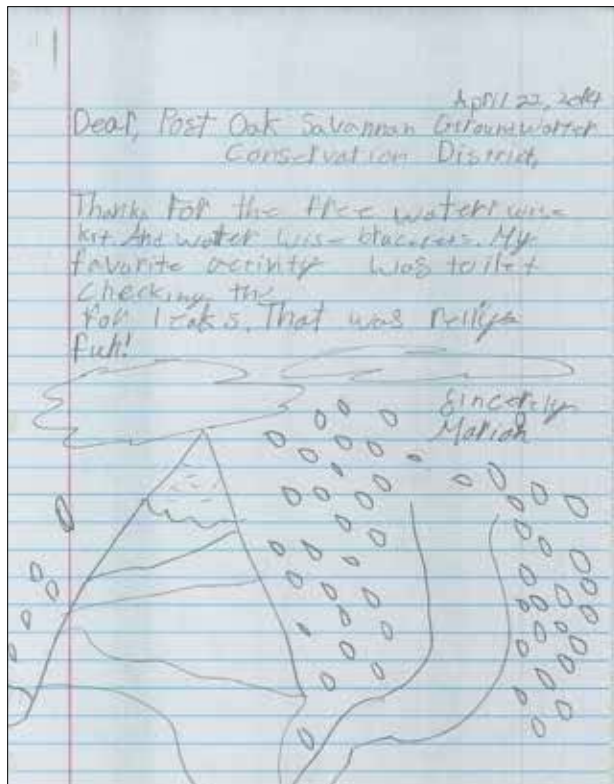 April 22, 2014
Dear, Post Oak Savannah Groundwatter
Conservation District,
Thanks for the free water wise
kit. And water wise bracelets. My
favorite activity was toilet
checking the
for leaks. That was
fun!
Sincerely
Marian